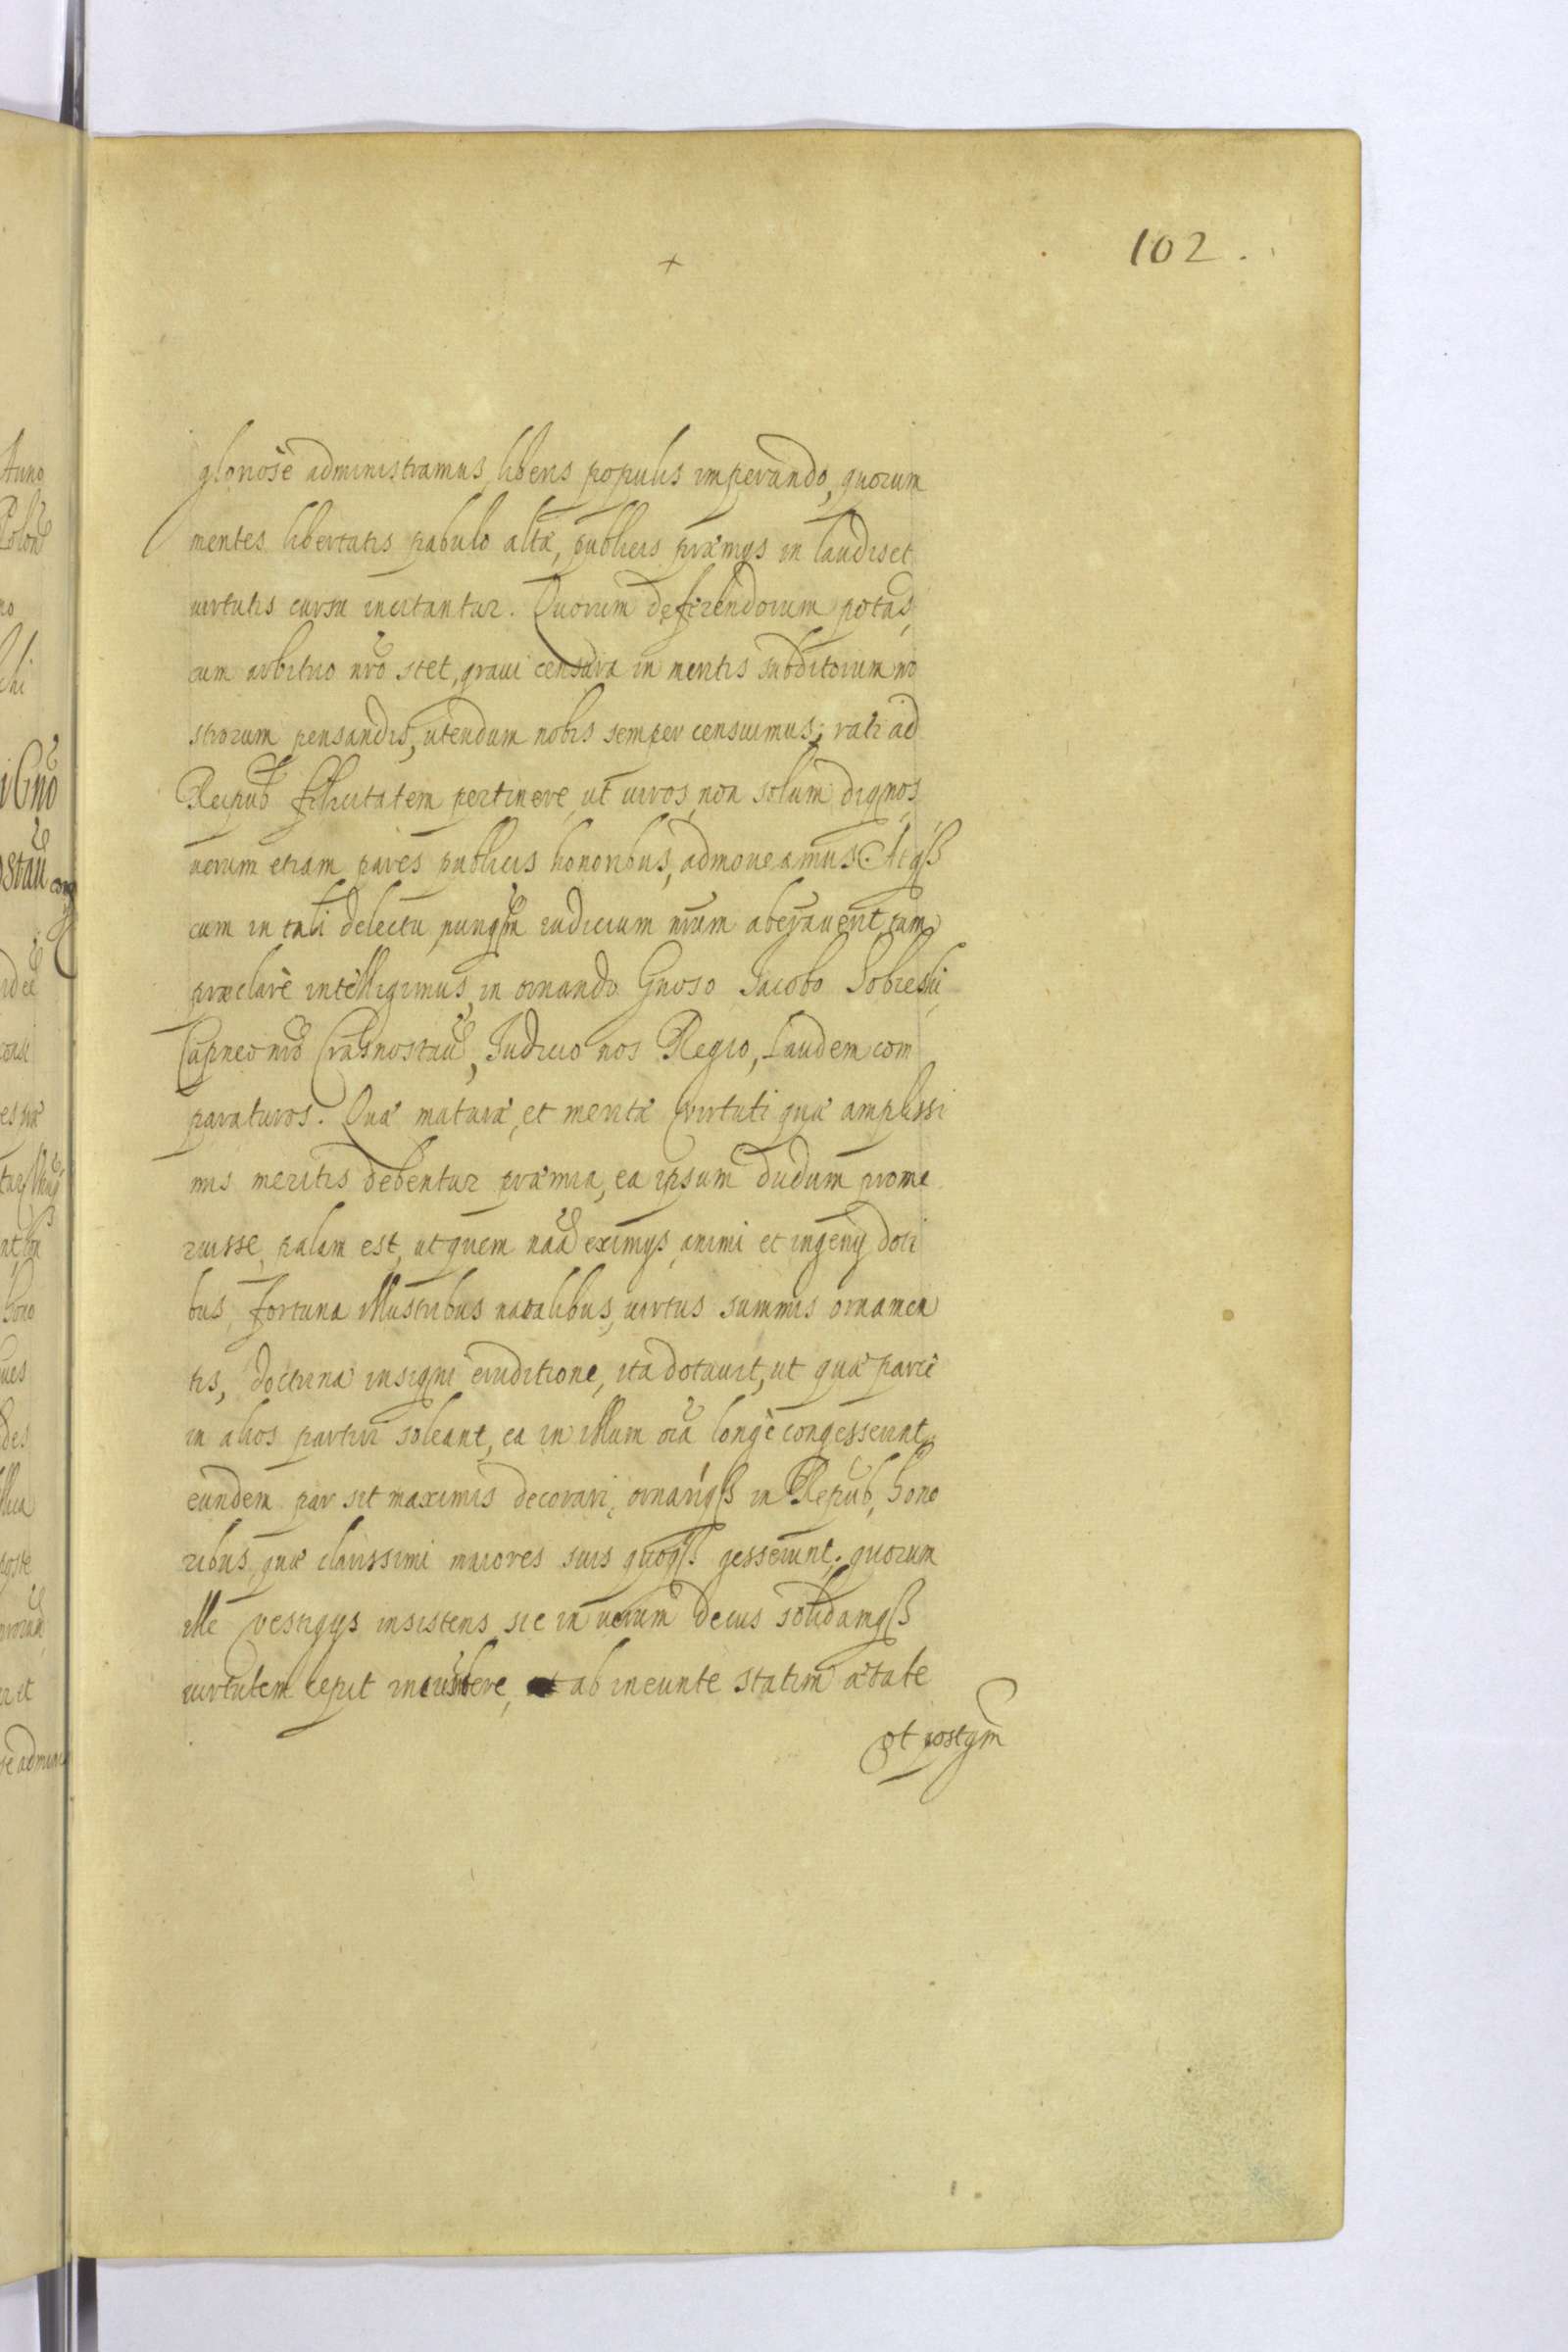 102.
+
gloriosè administramus, liberis populis imperando, quorum
mentes libertatis pabulo altæ, publicis præmys in laudis et
virtutis cursu incitantur. Quorum deferendorum potās,
cum arbitrio nrō stet, graui censura in meritis subditorum no
strorum pensandis, utendum nobis semper censuimus; rati ad
Reipub felicitatem pertinere, ut viros non solum dignos
uerum etiam pares publicis honoribus, admoueamus. Atqß
cum in tali delectu nunqm̃ iudicium nr̃um aberrauerit, tam
præclarè intelligimus, in ornando Gnoso Jacobo Sobieski
Capneo nrō Crasnostaū, Judicio nos Regio, laudem com
paraturos. Quæ maturæ, et meritæ virtuti quæ amplissi
mis meritis debentur præmia, ea ipsum dudum prome
ruisse, palam est, ut quem naã eximys animi et ingeny doti
bus, fortuna illustribus natalibus, virtus summis ornamen
tis, doctrina insigni eruditione, ita dotauit, ut quæ parcè
in alios partiri soleant, ea in illum oĩa longè congesserint,
eundem par sit maximis decorari, ornariqß in Repub, hono
ribus, quæ clarissimi maiores suis quoqß gesserunt; quorum
ille vestigys insistens sic in uerum decus solidamqß
virtutem cepit incumbere, ab ineunte statim ætate
et postqm̃